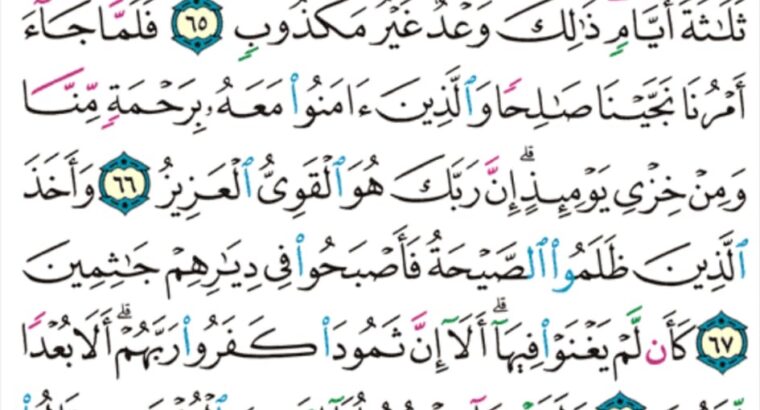 ثَلَٰثَةَ أَيَّامٍ ذَٰلِكَ وَعْدٌ غَيْرُ مَكْذُوبٍ ٦٥ فَلَمَّا جَآءَ
أَمْرُنَا نَجَّيْنَا صَٰلِحًا وَٱلَّذِينَ ءَامَنُوا۟ مَعَهُۥ بِرَحْمَةٍ مِّنَّا
وَمِنْ خِزْىِ يَوْمِئِذٍ ۗ إِنَّ رَبَّكَ هُوَ ٱلْقَوِىُّ ٱلْعَزِيزُ ٦٦ وَأَخَذَ
ٱلَّذِينَ ظَلَمُوا۟ ٱلصَّيْحَةُ فَأَصْبَحُوا۟ فِى دِيَٰرِهِمْ جَٰثِمِينَ
٦٧ كَأَن لَّمْ يَغْنَوْا۟ فِيهَآ ۗ أَلَآ إِنَّ ثَمُودَا۟ كَفَرُوا۟ رَبَّهُمْ ۗ أَلَا بُعْدًا